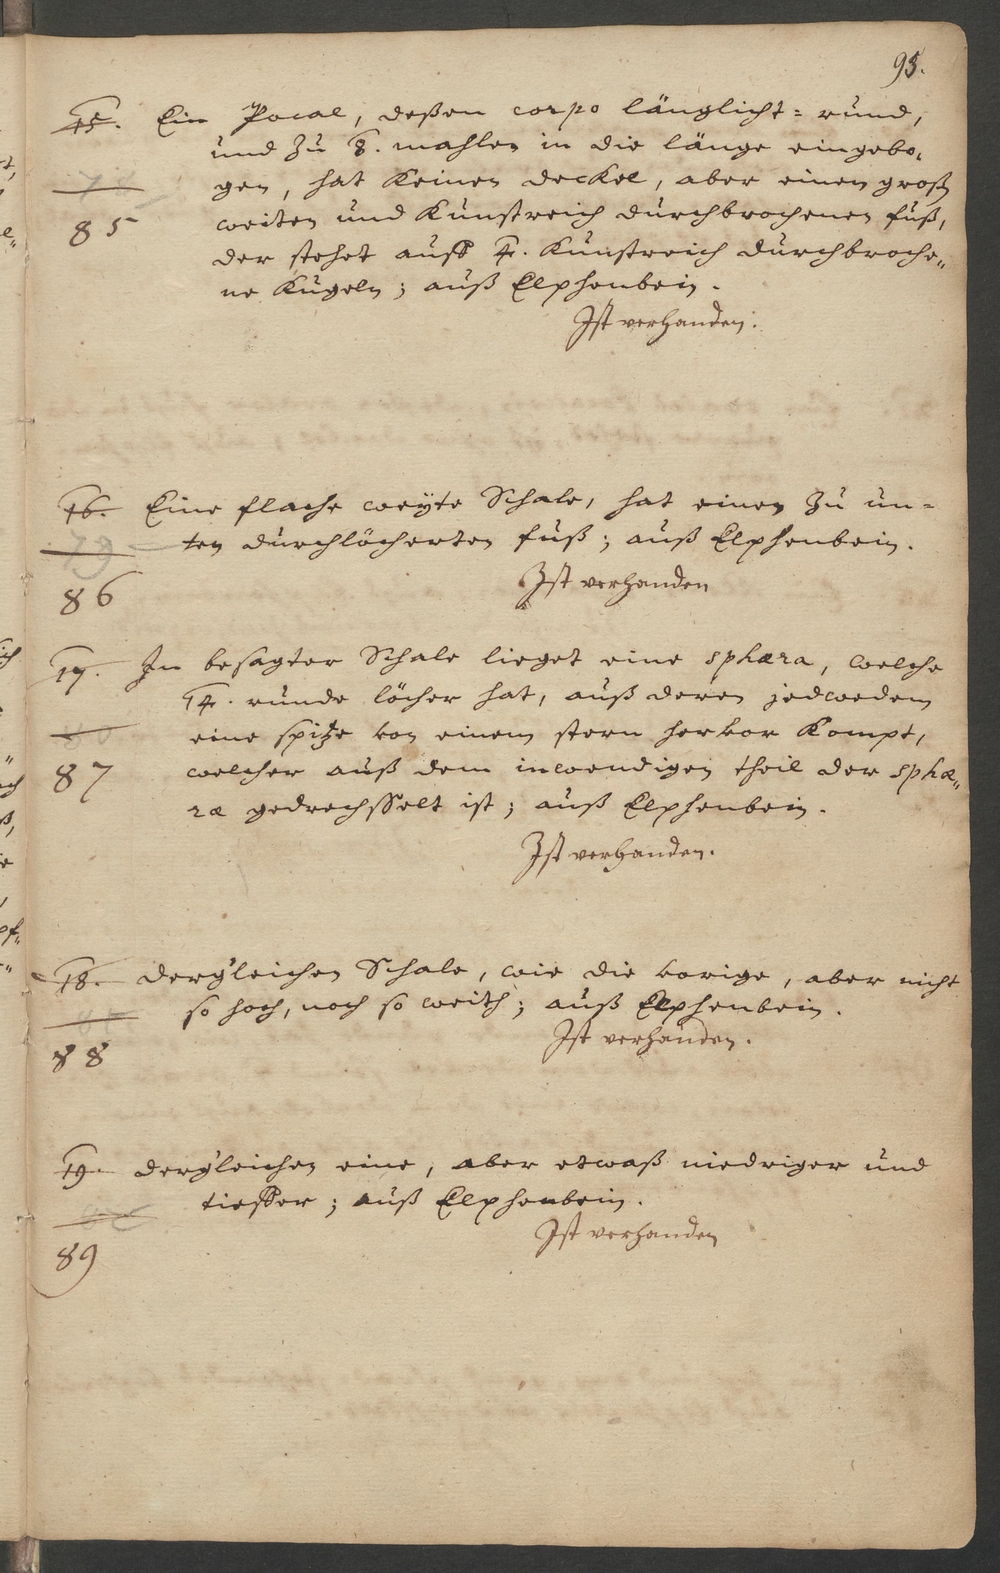 93.
15. Ein Pocal, deßen corpo länglicht= rund,
und zu 8. mahlen in die länge eingebo„
gen, hat keinen deckel, aber einen groß
85 weiten und kunstreich durchbrochenen fuß,
der stehet auff 4. kunstreich durchbroche„
ne kugeln; auß Elphenbein.
Ist verhanden.
16. Eine flache weÿte Schale, hat einen zu un=
ten durchlöcherten fuß; auß Elphenbein.
86 Ist verhanden
17. In besagter Schale lieget eine sphæra, welche
14. runde löcher hat, auß deren jedwedem
eine spitze von einem stern hervor kompt,
87 welcher auß dem inwendigen theil der sphæ„
ræ gedrechsselt ist; auß Elphenbein.
Ist verhanden.
18. dergleichen Schale, wie die vorige, aber nicht
so hoch, noch so weith; auß Elphenbein.
88 Ist verhanden.
19. dergleichen eine, aber etwaß niedriger und
tieffer; auß Elphenbein.
89 Ist verhanden